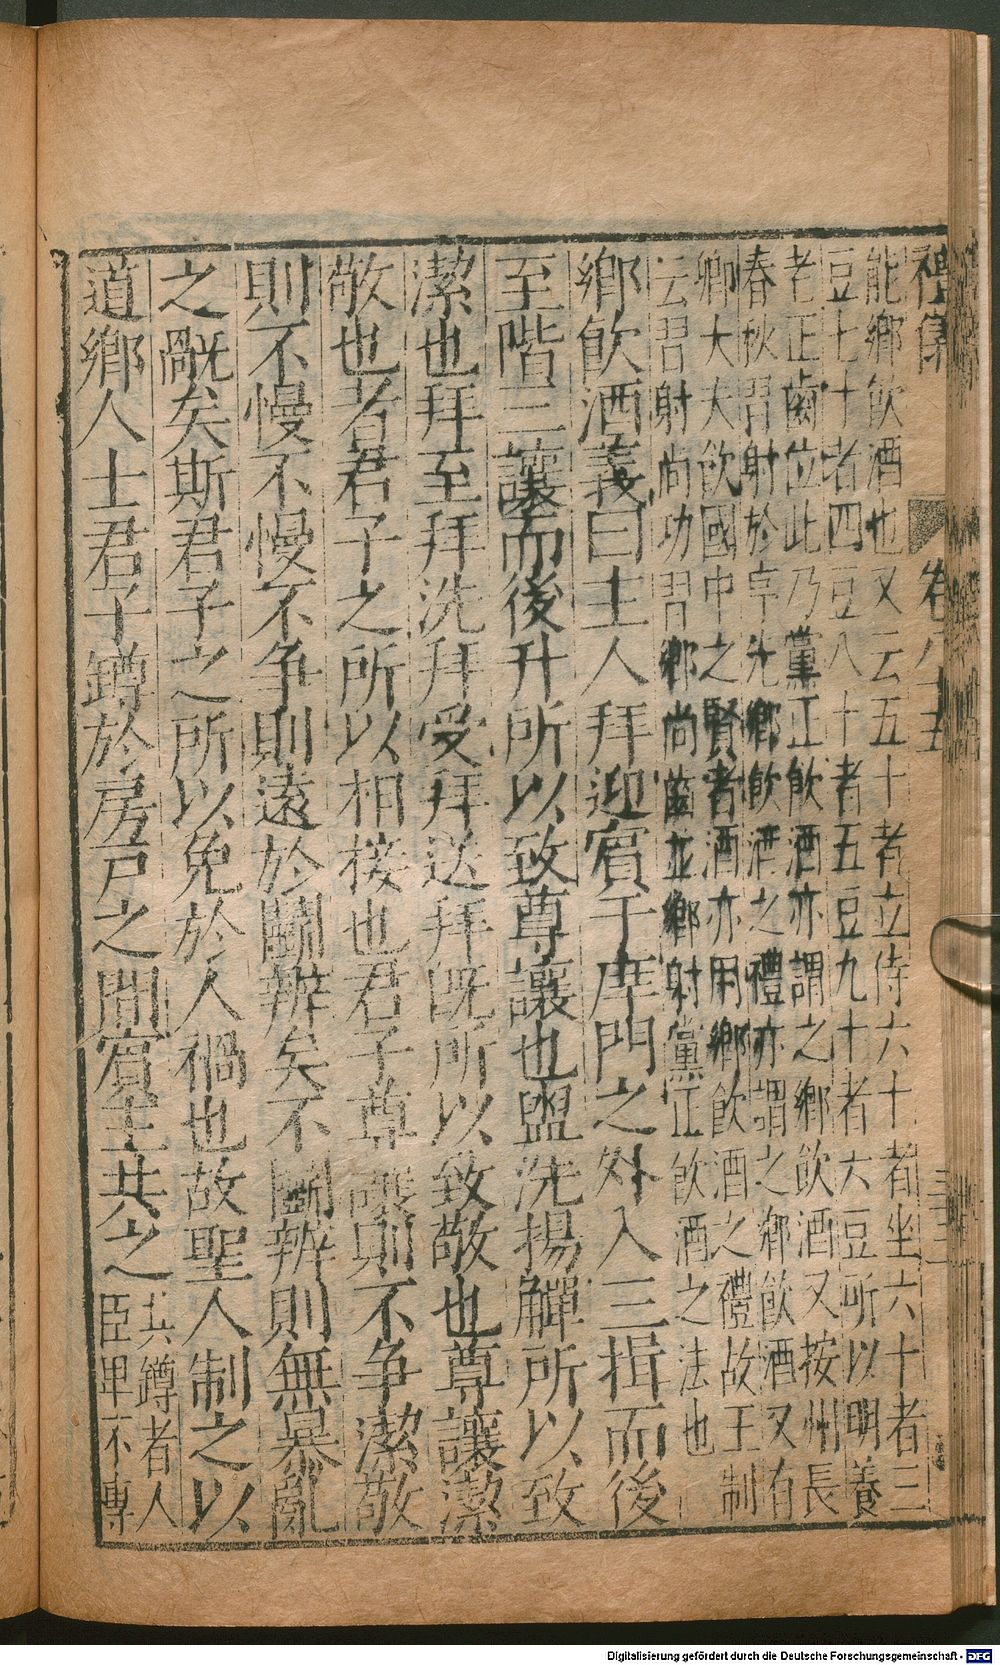 禮集 卷八十五
能鄉飲酒也又云五十者立侍六十者坐六十者三
豆七十者四豆八十者五豆九十者六豆所以明養
老正齒位此乃黨正飲酒亦謂之鄉飲酒又按州長
春秋習射於序先鄉飲酒之禮亦謂之鄉飲酒又有
卿大夫飲國中之賢者酒亦用鄉飲酒之禮故王制
云習射尚功習鄉尚齒並鄉射黨正飲酒之法也
鄉飲酒義曰主人拜迎賓于庠門之外入三揖而後
至階三讓而後升所以致尊讓也盥洗揚觶所以致
潔也拜至拜洗拜受拜送拜既所以致敬也尊讓潔
敬也者君子之所以相接也君子尊讓則不争潔敬
則不慢不慢不争則遠於鬭辨矣不鬭辨則無暴亂
之觤矣斯君子之所以免於人禍也故聖人制之以
道鄉人士君子罇於房戶之間賓主共之共罇者人
臣卑不專
Digitalisierung gefördert durch die Deutsche Forschungsgemeinschaft - DFG